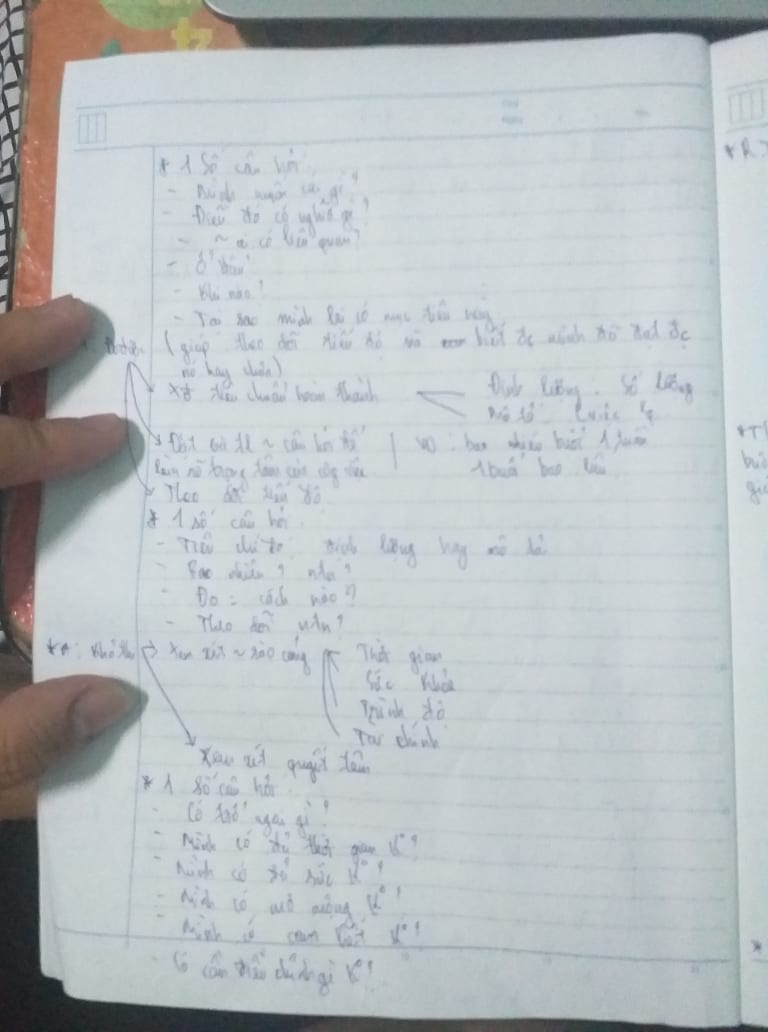 * 1 Số câu hỏi
- Mình muốn cái gì?
- Điều đó có nghĩa gì?
- ~ ai có liên quan?
- Ở đâu?
- Khi nào?
- Tại sao mình lại có mục tiêu này
(giúp theo dõi tiến độ và biết đc mình đã đạt đc
nó hay chưa)
XĐ tiêu chuẩn hoàn thành
Định lượng: Số lượng
Mô tả:
Đặt và tl ~ câu hỏi để
làm rõ trọng tâm của công việc
VD: bao nhiêu buổi 1 tuần
1 buổi bao lâu
Theo dõi tiến độ
* 1 số câu hỏi
- Tiêu chí đó định lượng hay mô tả
- Bao nhiêu? ntn?
- Đo = cách nào?
- Theo dõi ntn?
* A: Khả thi
Xem xét ~ rào cảng
Thời gian
Sức khỏe
Trình độ
Tài chính
Xem xét quyết tâm
* 1 số câu hỏi
- Có trở ngại gì?
- Mình có đủ thời gian K°?
- Mình có đủ sức K°?
- Mình có K°?
- Mình có cam kết K°?
- Có cần điều chỉnh gì K°?
* R: